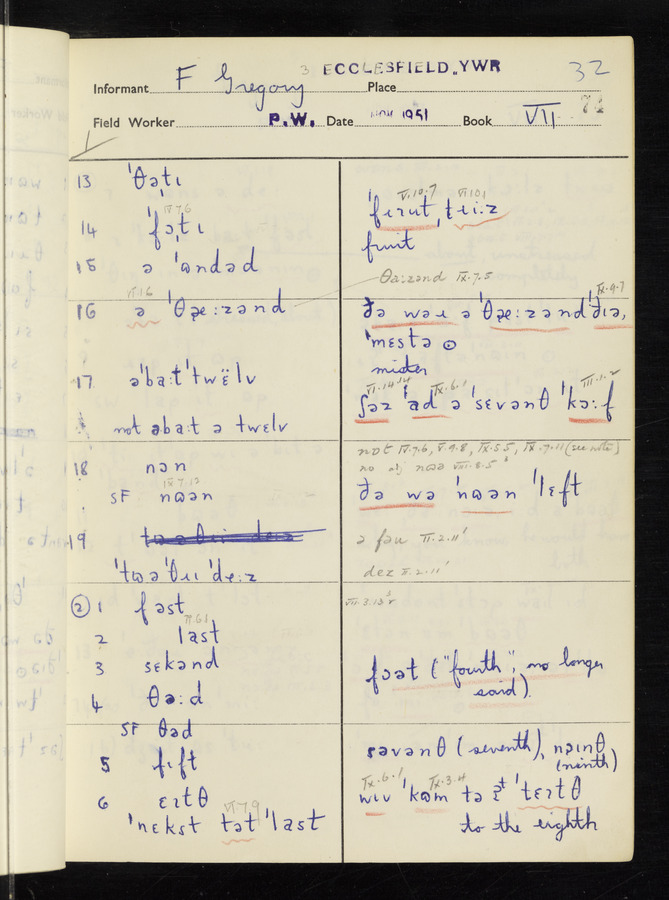 3 ECCLESFIELD, YWR
32
Informant F Gregory Place
Field Worker P.W. Date NOV 1951 Book VII 72
13 ˈθəːtɪ
IV.7.6
14 ˈfəːtɪ
15 ə ˈʊndəd
VII.1.6
16 ə ˈθɒeːzənd
17 əˈbaːtˈtwëlv
not əbaːt ə twelv
18 nən
IX.7.13
SF nʊən
19
ˈtʊəˈθɾɪɪ ˈdeːz
② 1 fəst
VI.6.1
2 last
3 sɛkənd
4 θəːd
SF θəd
5 fɪft
6 ɛɪtθ
VII.7.9
ˈnɛkst tət ˈlast
V.10.7 VI.10.1
ˈfɪɪut, tɾiːz
fruit
θaːzənd IX.7.5
IX.9.7
ðə wəɪ ə ˈθɒeːzənd ˈðɪə,
ˈmɛstə ⊙
mister
VI.14.14 IX.6.1 III.1.2
ʃəz ˈad ə ˈsɛvənθ ˈkəːf
not IV.7.6, V.9.8, IX.5.5, IX.9.11 (see note)
VIII.8.5
ðə wə ˈnʊən ˈlɛft
ə fəu II.2.11
dez II.2.11
VII.3.13
fɔət ("fourth"; no longer
said).
sɛvənθ (seventh), nəɪnθ
(ninth)
IX.6.1 IX.3.4
wɪv ˈkʊm tə ˈtɛɪtθ
to the eighth